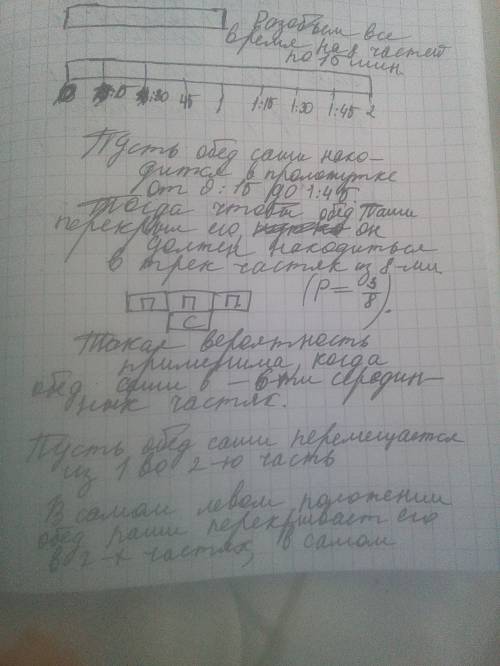 Разобьем все
время на 8 частей
по 15 мин.
45 1 1:15 1:30 1:45 2
Пусть обед саши нахо-
дится в промежутке
от 0:15 до 1:45
Тогда чтобы обед Паши
перекрыл его, он
должен находиться
в трех частях из 8-ми
(P = 3/8).
П П П
С
Такая вероятность
применима, когда
обед саши в 6-ти середин-
ных частях.
Пусть обед саши перемещается
из 1 во 2-ю часть
В самом левом положении
обед паши перекрывает его
в 2-х частях, в самом